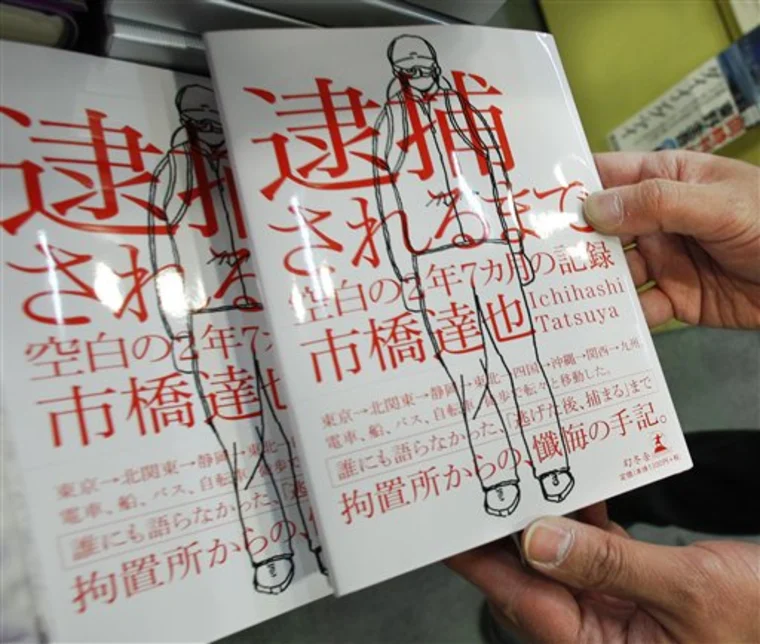 逮捕
されるまで
空白の2年7カ月の記録
市橋達也
Ichihashi
Tatsuya
東京→北関東→静岡→東北→四国→沖縄→関西→九州。
電車、船、バス、自転車、徒歩で転々と移動した。
誰にも語らなかった、「逃げた後、捕まる」まで
拘置所からの、懺悔の手記。
幻冬舎
定価(本体1300円+税)
逮捕
される
空白の2年7
市橋達也
東京→北関東→静岡→東北
電車、船、バス、自転車
誰にも語らなかった、「逃
拘置所からの、